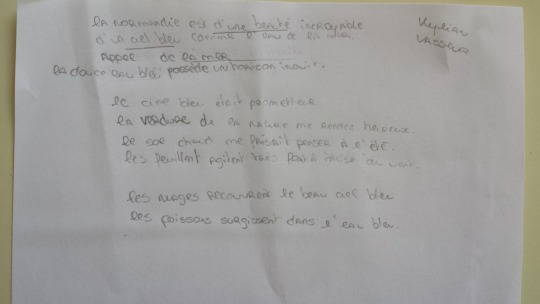 la Normandie est d'une beauté incroyable
d'un ciel bleu comme l'eau de la mer.
Appel de la mer
la douce eau bleu possède un horizon inouit.
Kylian
le ciel bleu était prometteur
la verdure de la nature me rendez heureux.
le sol chaud me faisait penser à l'été.
les feuillent agitent
les nuages recouvrent le beau ciel bleu
les poissons surgissent dans l'eau bleu.